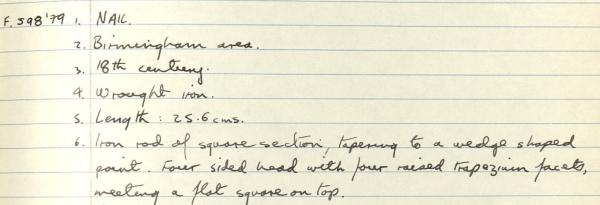 F.598'79 1. NAIL.
2. Birmingham area.
3. 18th century.
4. Wrought iron.
5. Length: 25.6 cms.
6. Iron rod of square section, tapering to a wedge shaped
point. Four sided head with four raised trapezium facets,
meeting a flat square on top.